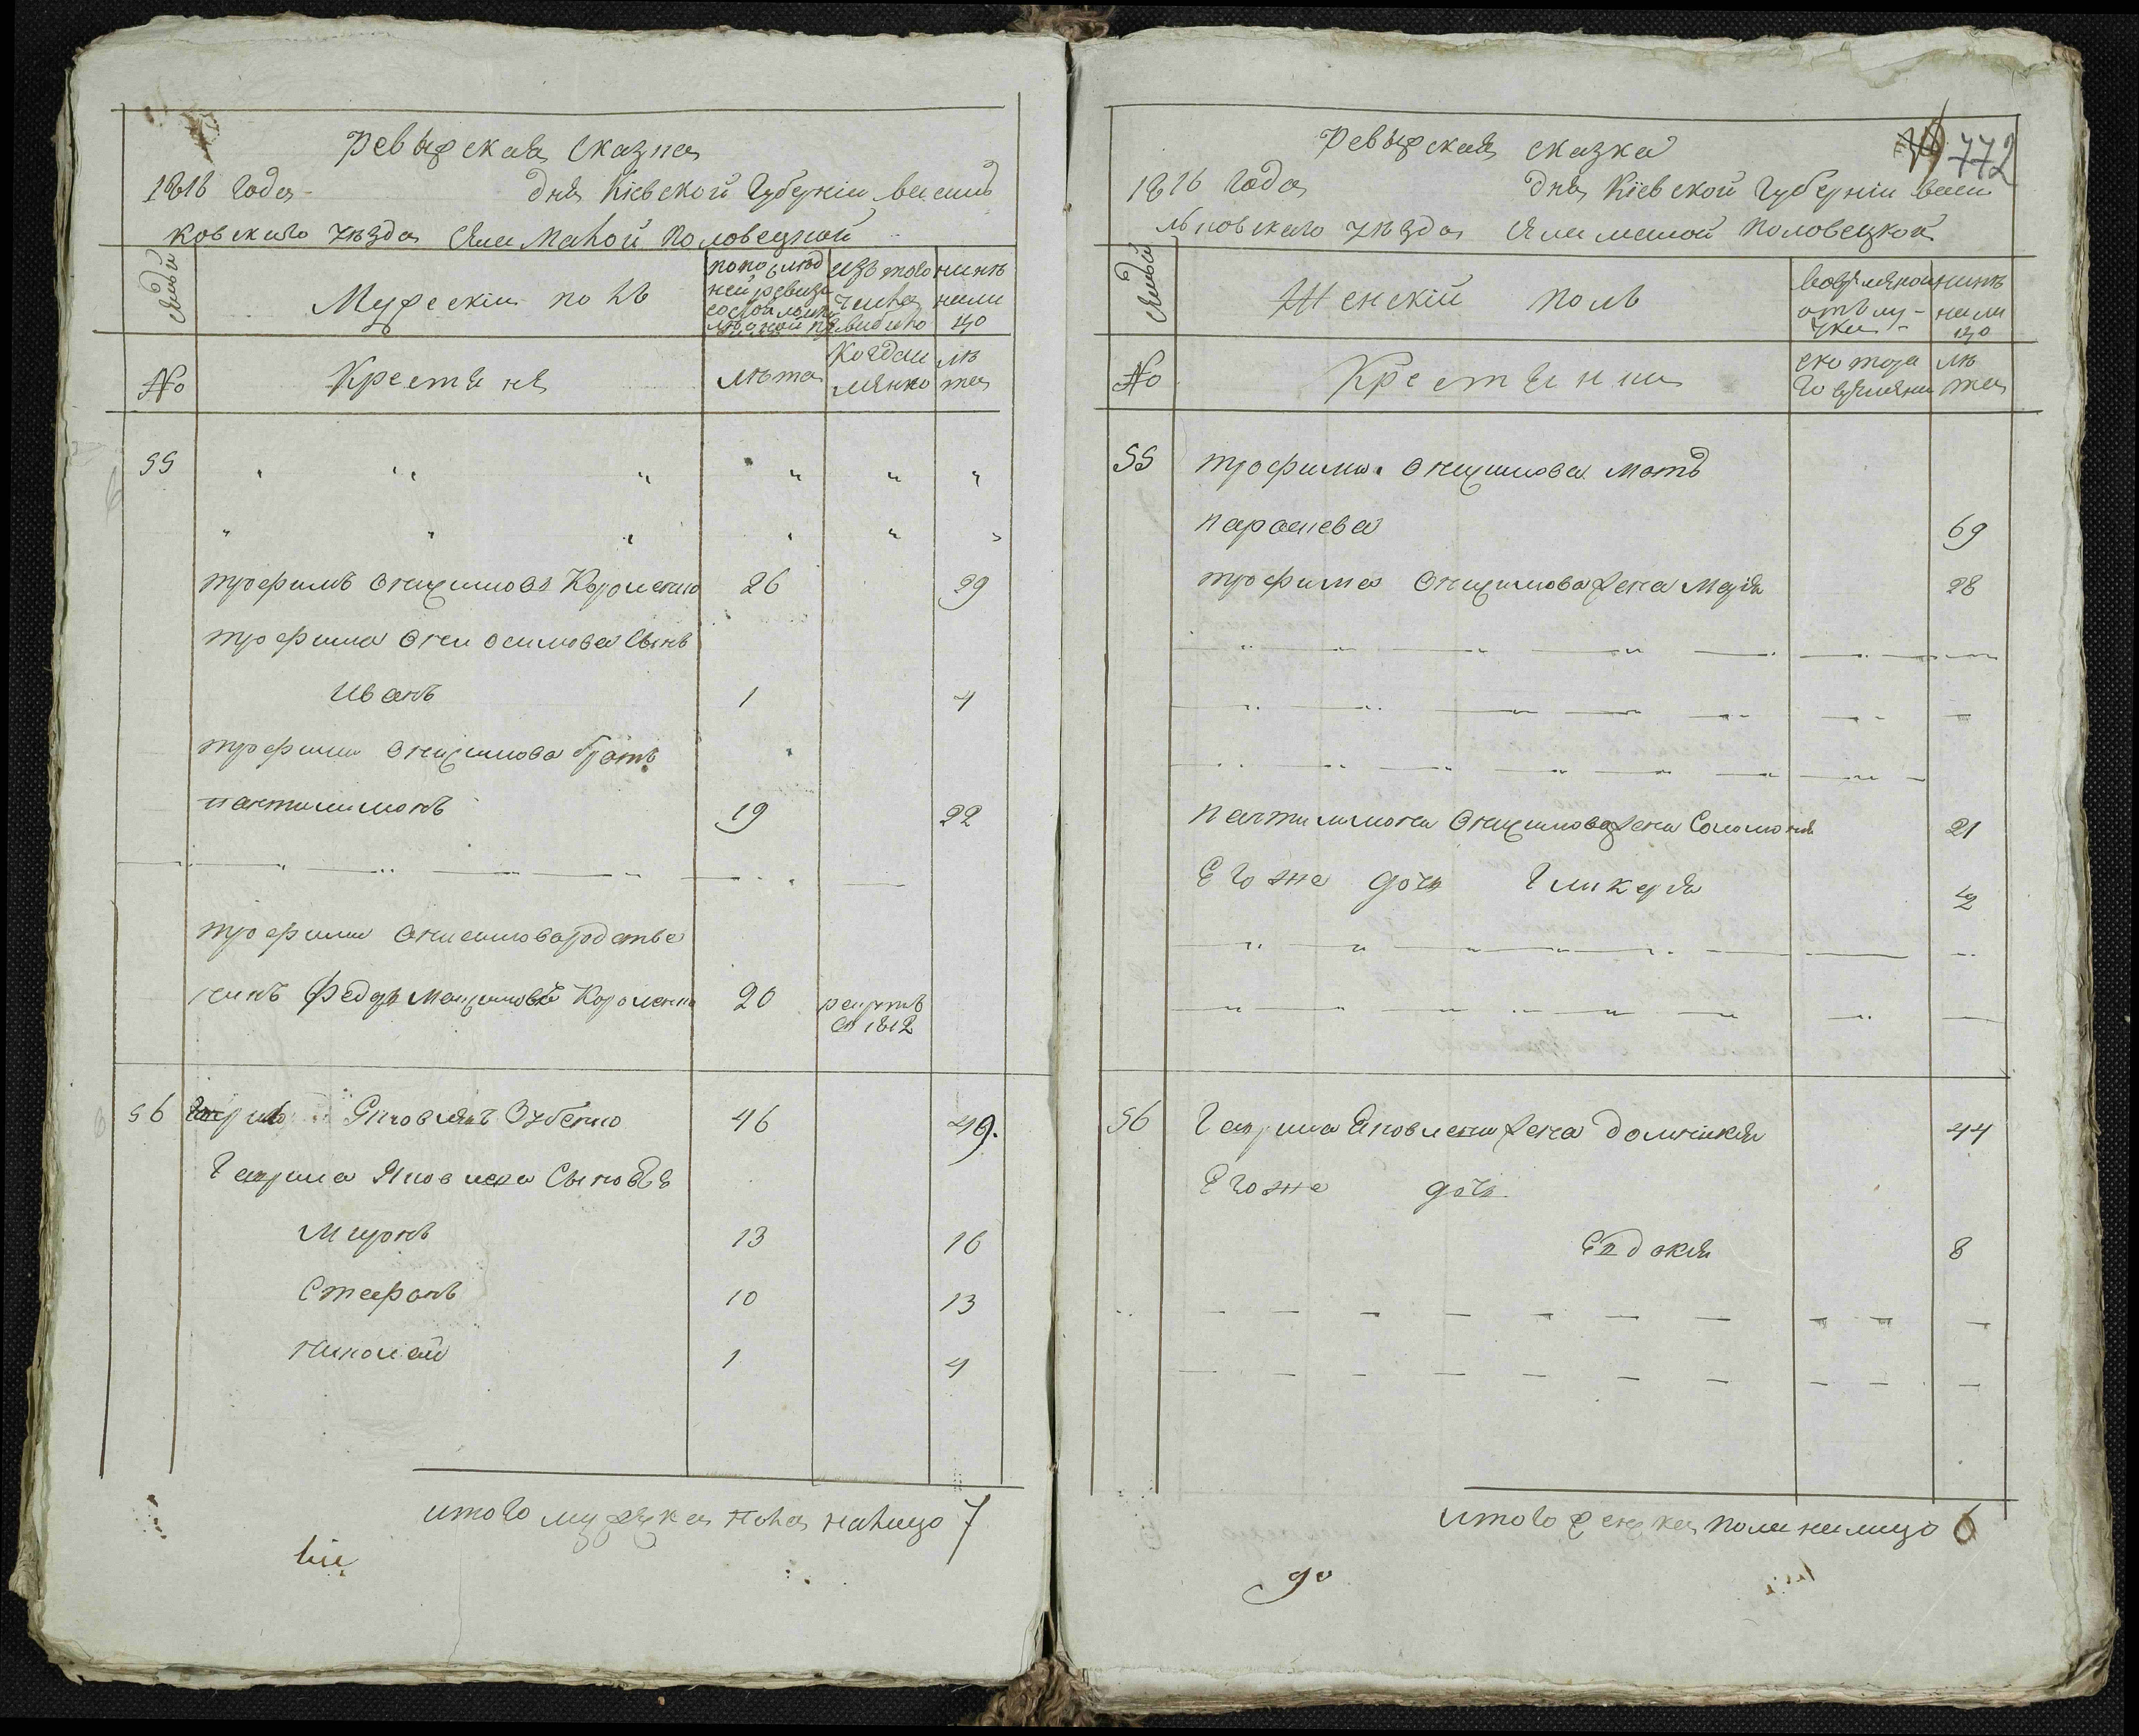 Ревызская Сказка
1816 Года дня Кіевской Губерніи Василь
ковскаго уѣзда Села Малой Половецкой
Семьи
Мужескій полъ
по послѣд
ней ревизіи
состояло
изъ того
числа
выбыло
нынѣ
нали
цо
№
Крестьяне
лѣта
Когда
именно
лѣ
та
55
Трофимъ Онисимовъ Короленко 26 29
Трофима Онисимова Сынъ
Иванъ 1 4
Трофима Онисимова братъ
Пантилимонъ 19 22
Трофима Онисимова родстве
никъ Федоръ Максимовъ Короленко 20 рекрутъ
въ 1812
56 Гаврило Яковлевъ Зубенко 46 49.
Гаврила Яковлева Сыновья
Миронъ 13 16
Стефанъ 10 13
Николай 1 4
итого мужеска пола налицо 7
Ревызская сказка
772
1816 Года дня Кіевской Губерніи Васи
льковскаго уѣзда Села малой Половецкой
Семьи
Женскій полъ
Во временной
отлу-
чки
нынѣ
нали
цо
№
Крестьяни
съ котора
го времяни
лѣ
та
55 Трофима Онисимова мать
Параскева 69
Трофима Онисимова жена Марія 28
Пантилимона Онисимова жена Соломонія 21
Его же дочь Гликерія 2
56 Гаврила Яковлева жена Домникія 44
Его же дочь
Евдокія 8
итого женска пола налицо 6